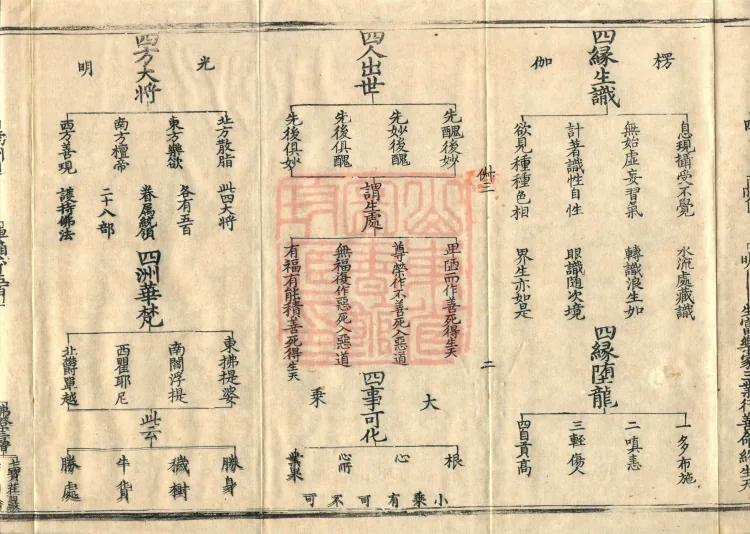 生富樂家三業行善命終生天
楞伽
四緣生識
息現攝受不覺
無始虛妄習氣
計著識性自性
欲見種種色相
水流處藏識
轉識浪生如
眼識隨次境
界生亦如是
四緣墮龍
一多布施
二嗔恚
三輕傷人
四自貢高
二
四人出世
先醜後妙
先妙後醜
先後俱醜
先後俱妙
謂生處
卑陋而作善死得生天
尊榮作不善死入惡道
無福復作惡死入惡道
有福有能積善死得生天
大乘
四事可化
根
心
心所
小乘有可不可
光明
四方大將
北方散脂
東方樂欲
南方檀帝
西方善現
此四大將
各有五百
眷屬統領
二十八部
護持佛法
四洲華梵
東拂提婆
南閻浮提
西瞿耶尼
北鬱單越
此云
勝身
穢樹
牛貨
勝處